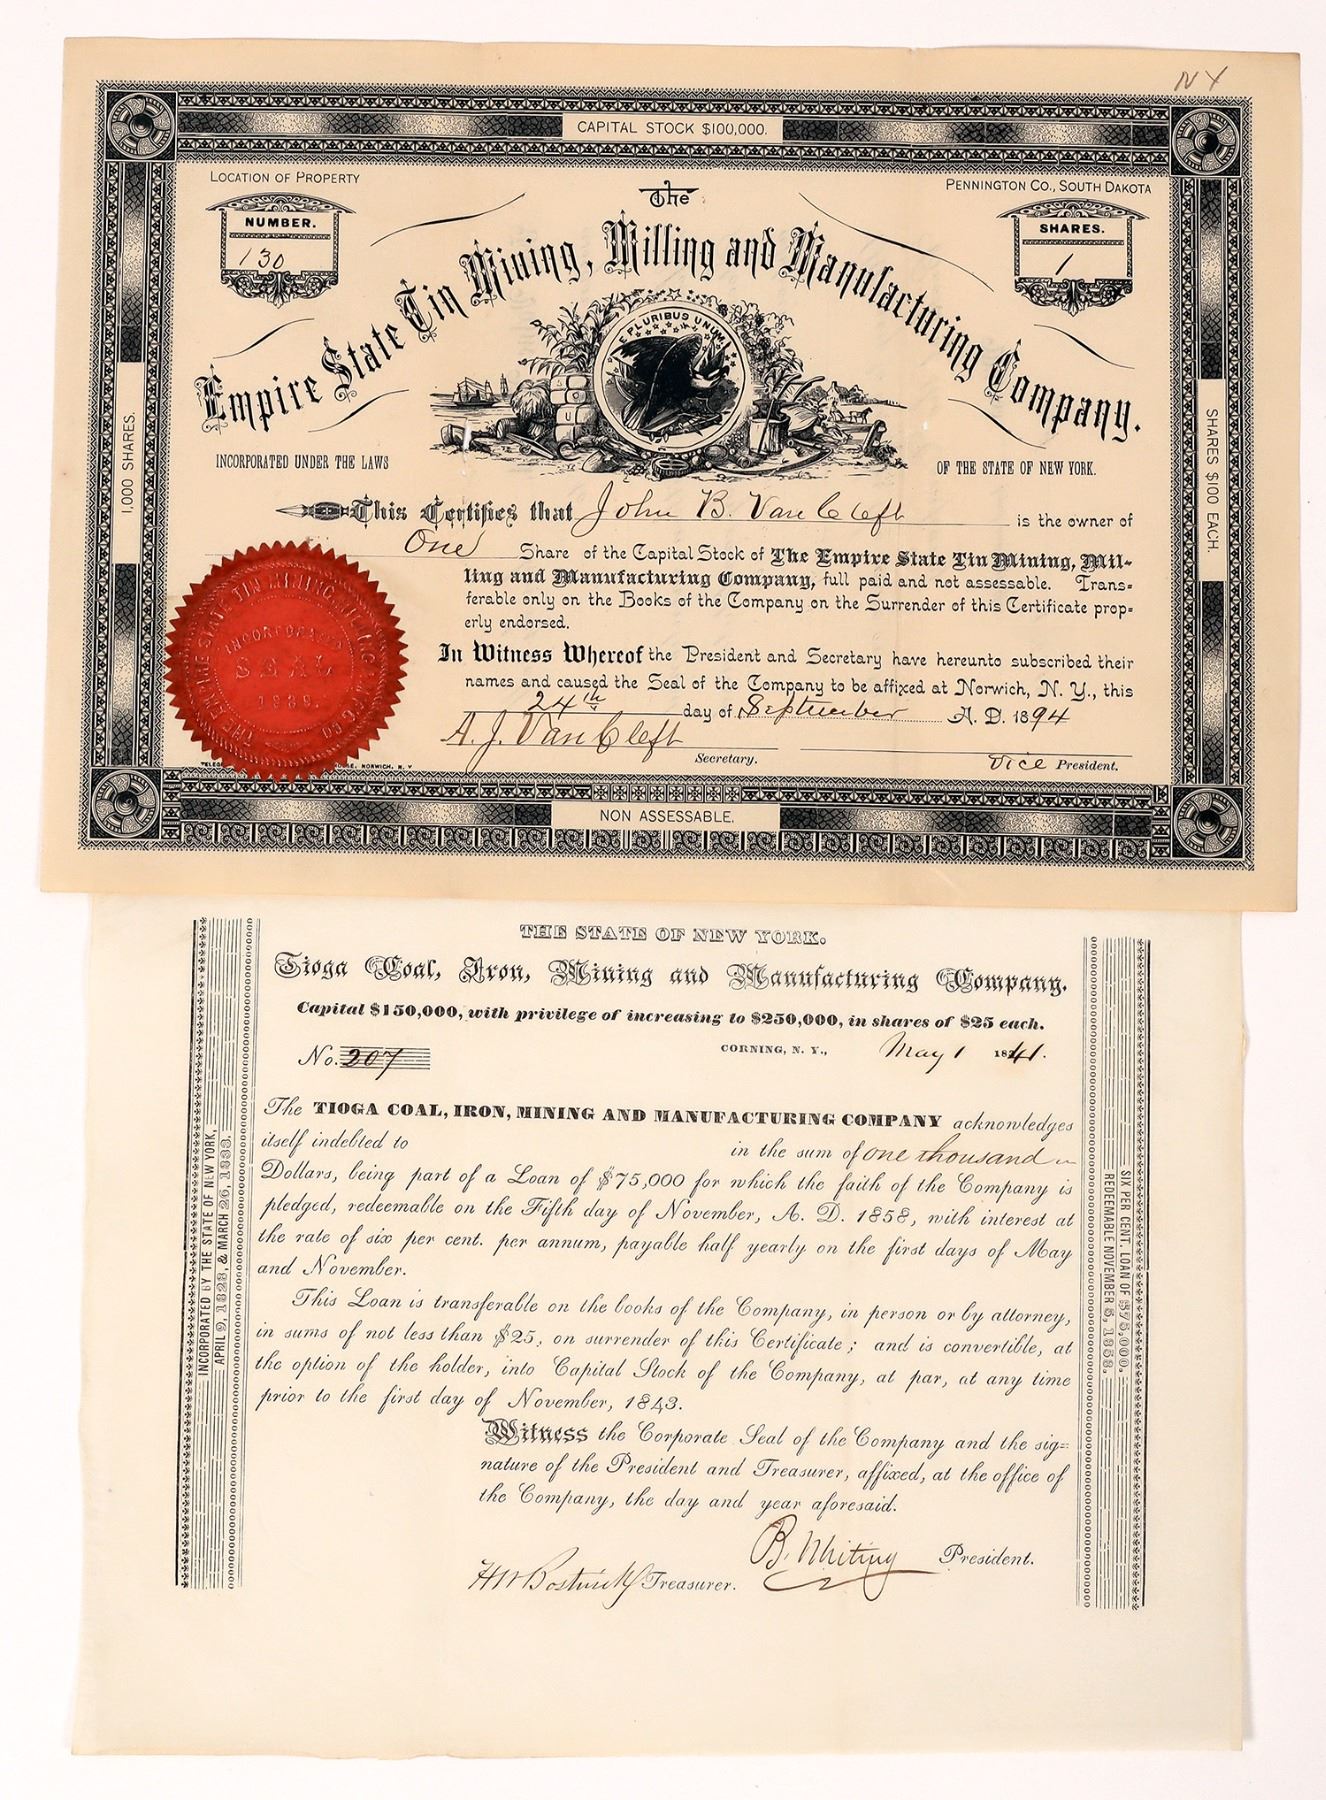 NY
CAPITAL STOCK $100,000.
LOCATION OF PROPERTY
PENNINGTON CO., SOUTH DAKOTA
NUMBER.
130
SHARES.
1
The
Empire State Tin Mining, Milling and Manufacturing Company.
E PLURIBUS UNUM
INCORPORATED UNDER THE LAWS
OF THE STATE OF NEW YORK.
1,000 SHARES.
SHARES $100 EACH.
This Certifies that John B. Van Cleft is the owner of
One Share of the Capital Stock of The Empire State Tin Mining, Mil-
ling and Manufacturing Company, full paid and not assessable. Trans-
ferable only on the Books of the Company on the Surrender of this Certificate prop-
erly endorsed.
In Witness Whereof the President and Secretary have hereunto subscribed their
names and caused the Seal of the Company to be affixed at Norwich, N. Y., this
24th day of September A. D. 1894
A. J. Van Cleft
Secretary.
Vice President.
THE EMPIRE STATE TIN MINING,
INCORPORATED
SEAL
1889.
NORWICH, N. Y
NON ASSESSABLE.
THE STATE OF NEW YORK.
Tioga Coal, Iron, Mining and Manufacturing Company.
Capital $150,000, with privilege of increasing to $250,000, in shares of $25 each.
No. 207
CORNING, N. Y., May 1 1841.
The TIOGA COAL, IRON, MINING AND MANUFACTURING COMPANY acknowledges
itself indebted to in the sum of one thousand
Dollars, being part of a Loan of $75,000 for which the faith of the Company is
pledged, redeemable on the Fifth day of November, A. D. 1858, with interest at
the rate of six per cent. per annum, payable half yearly on the first days of May
and November.
This Loan is transferable on the books of the Company, in person or by attorney,
in sums of not less than $25, on surrender of this Certificate; and is convertible, at
the option of the holder, into Capital Stock of the Company, at par, at any time
prior to the first day of November, 1843.
Witness the Corporate Seal of the Company and the sig-
nature of the President and Treasurer, affixed, at the office of
the Company, the day and year aforesaid.
B. Whiting President.
H W Bostwick Treasurer.
INCORPORATED BY THE STATE OF NEW YORK,
APRIL 9, 1828, & MARCH 26, 1833.
SIX PER CENT. LOAN OF $75,000.
REDEEMABLE NOVEMBER 5, 1858.